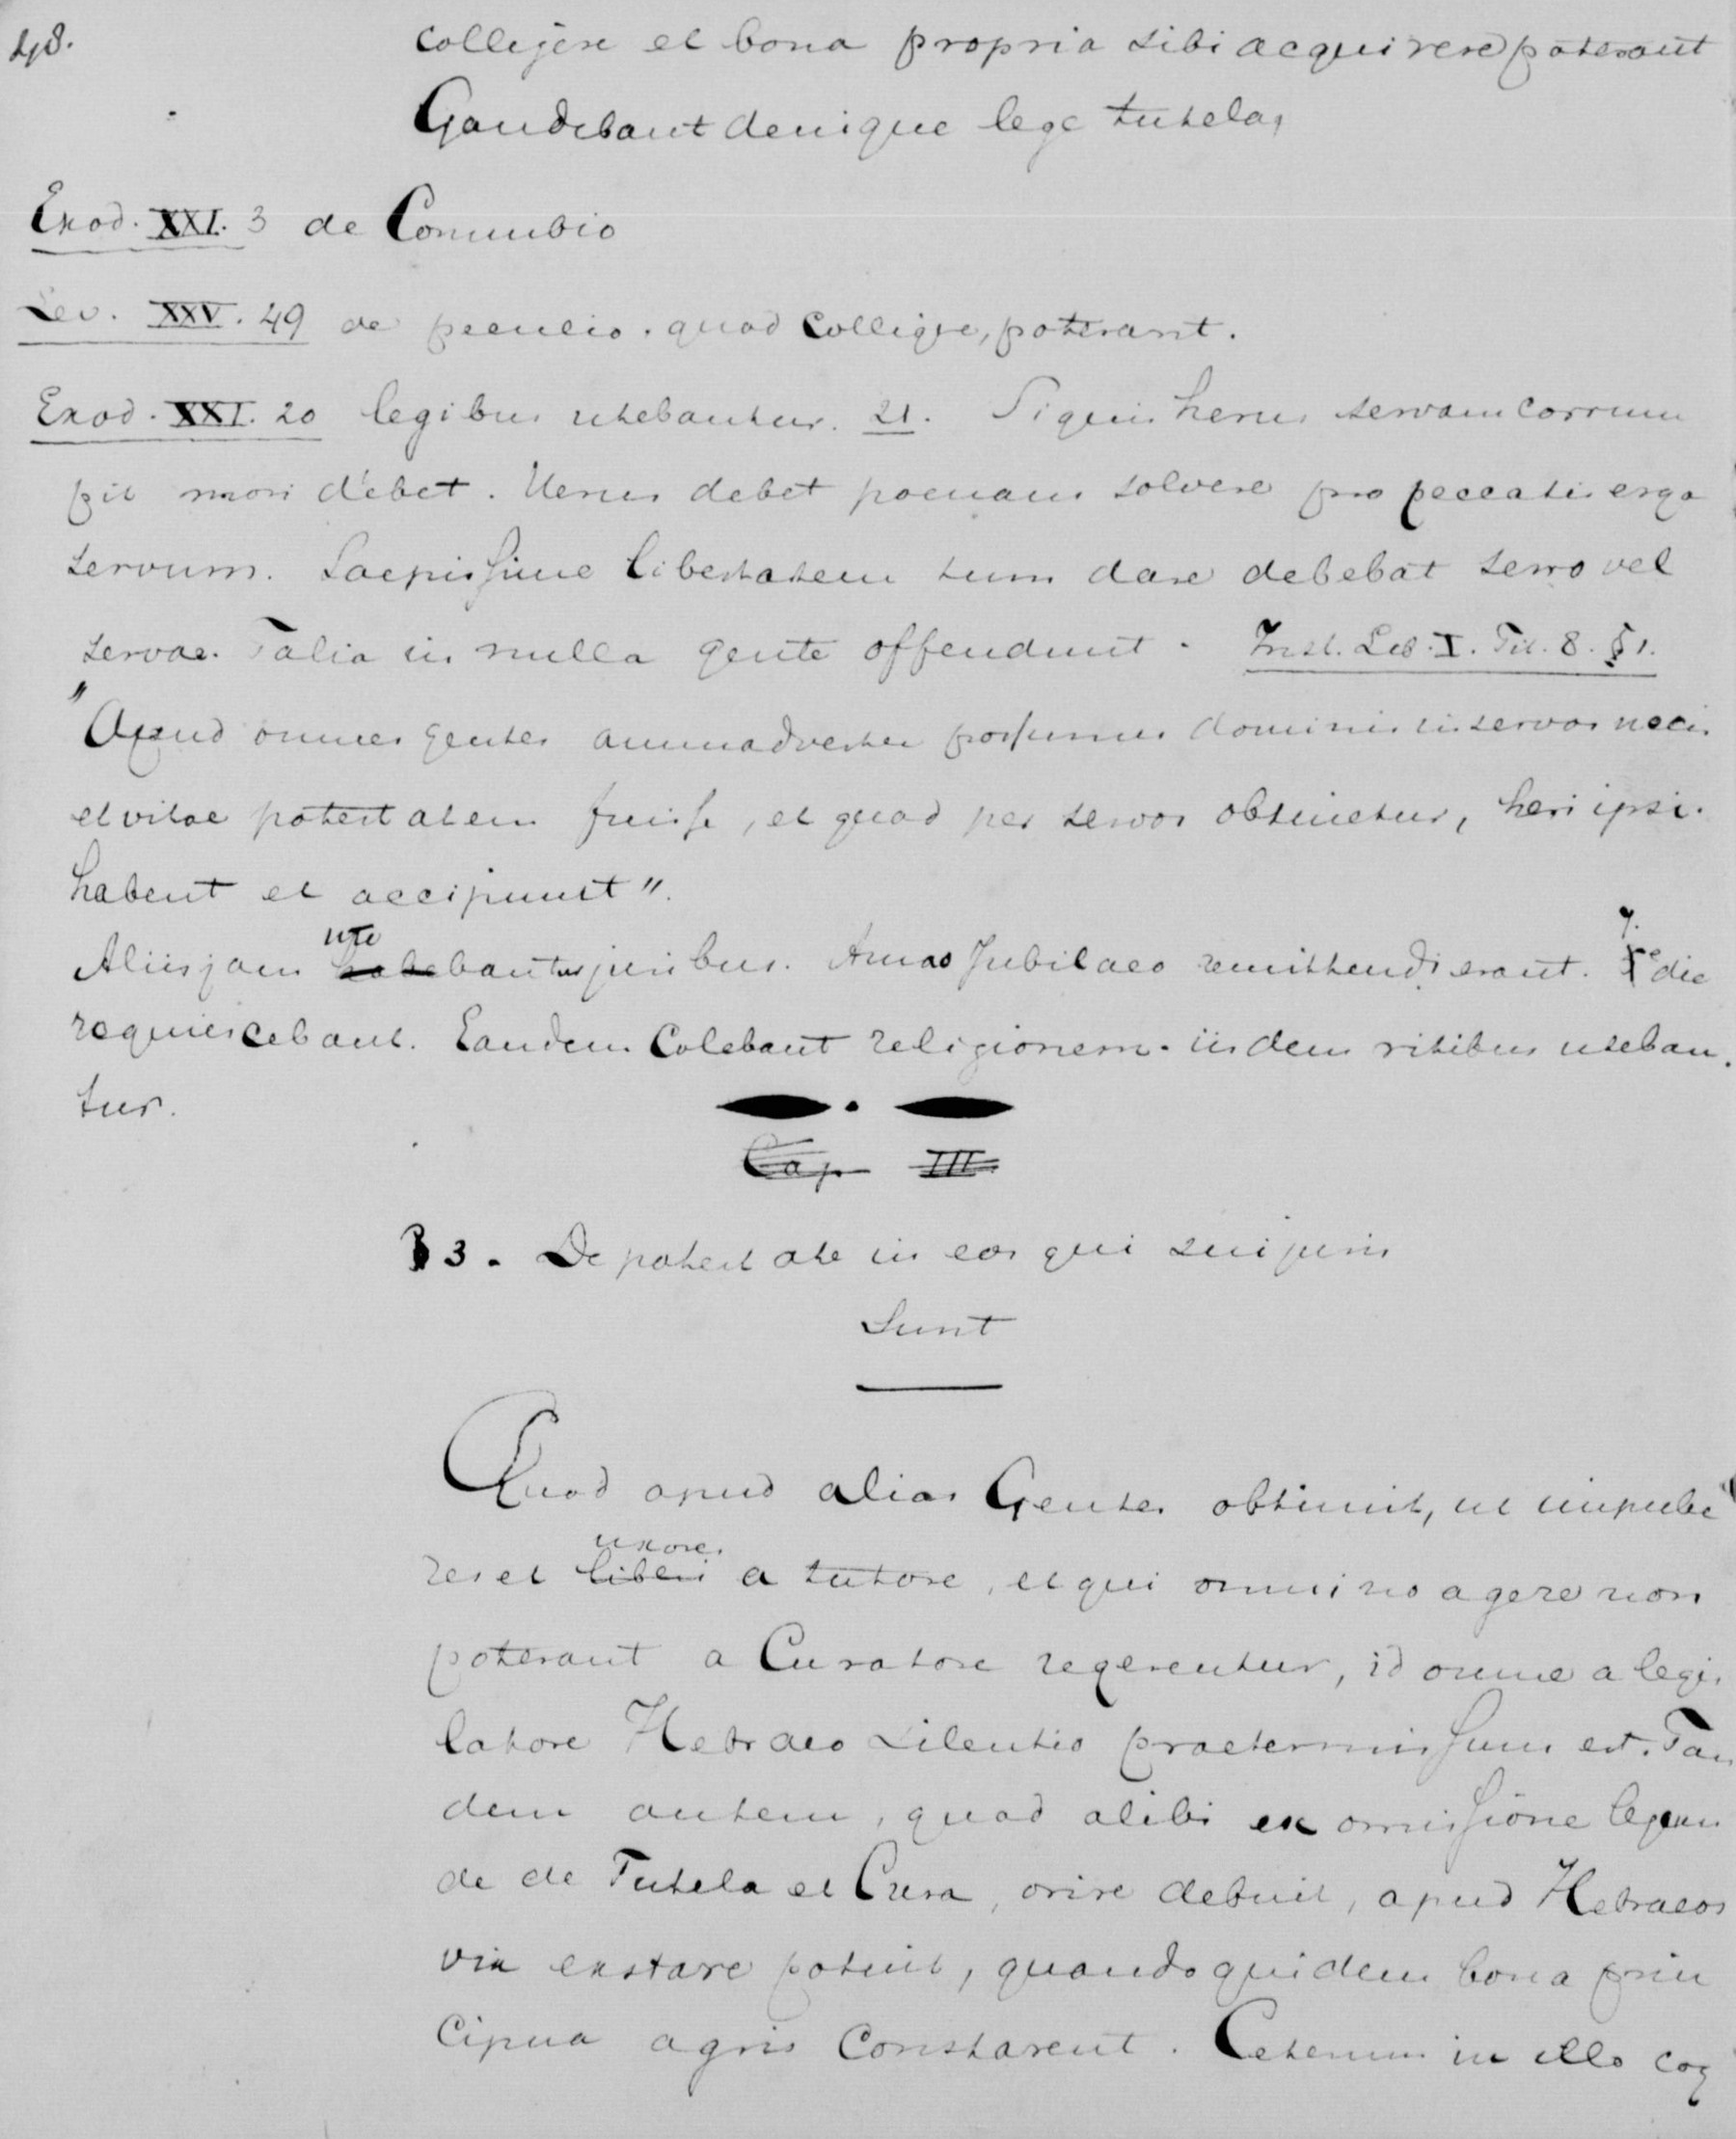 48.
colligere et bona propria sibi acquirere poterant
Gaudebant denique lege tutelas
Exod. XXI. 3 de Connubio
Lev. XXV. 49 de peculio. quod colligere, poterant.
Exod. XXI. 20 legibus utebantur. 21. Siquis herus servam corrum
pit mori debet. Herus debet poenam solvere pro peccatis erga
servum. Saepissime libertatem tum dare debebat servo vel
servae. Talia in nulla gente offendunt. Inst. Lib. I. Tit. 8. § 1.
"Apud omnes gentes animadvertere possumus dominis in servos necis
et vitae potestatem fuisse, et quod per servos obtinetur, heri ipsi
habent et accipiunt".
ute
Aliis jam habebantur juribus. Anno Jubilaeo remittendi erant. 7. die
requiescebant. Eandem colebant religionem. iisdem ritibus uteban
tur.
Cap III.
§ 3. De potestate in eos qui sui juris
sunt
Quod apud alias Gentes obtinuit, ut impube
uxores
res et liberi a tutore, et qui omnino agere non
poterant a Curatore regerentur, id omne a legis
latore Hebraeo silentio praetermissum est. Tan
dem autem, quod alibi ex omissione legum
de de Tutela et Cura, orire debuit, apud Hebraeos
vix exstare potuit, quandoquidem bona prin
cipua agris constarent. Ceterum in illo cog